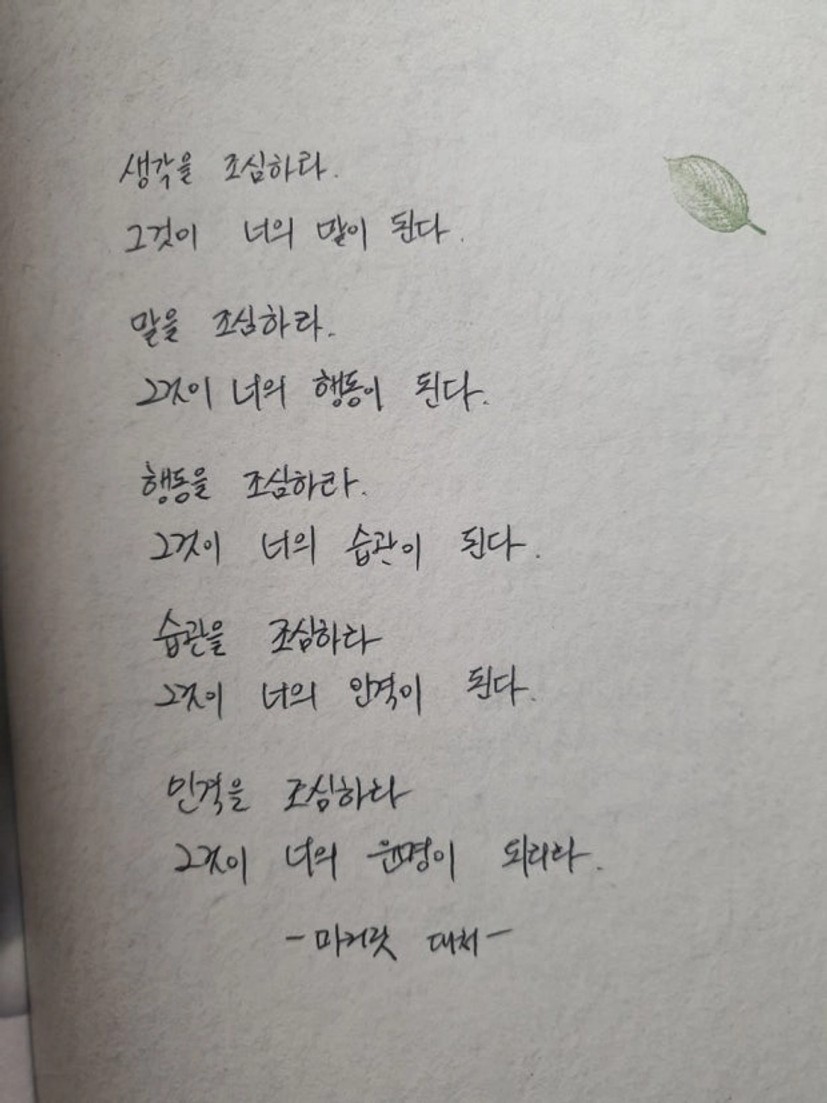 생각을 조심하라.
그것이 너의 말이 된다.
말을 조심하라.
그것이 너의 행동이 된다.
행동을 조심하라.
그것이 너의 습관이 된다.
습관을 조심하라
그것이 너의 인격이 된다.
인격을 조심하라
그것이 너의 운명이 되리라.
-마거릿 대처-